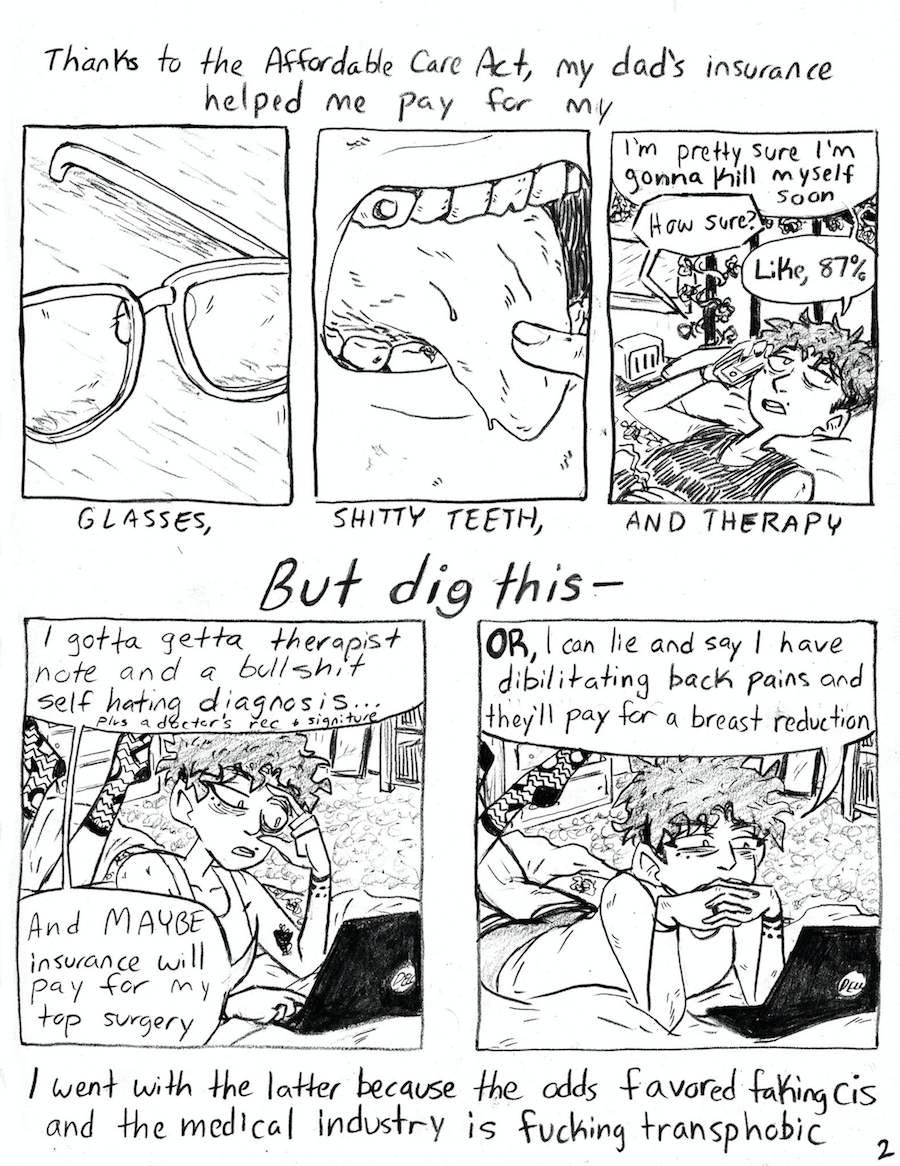 Thanks to the Affordable Care Act, my dad's insurance
helped me pay for my
I'm pretty sure I'm
gonna kill myself
soon
How sure?
Like, 87%
GLASSES,
SHITTY TEETH,
AND THERAPY
But dig this—
I gotta getta therapist
note and a bullshit
self hating diagnosis...
Plus a doctor's rec + signiture
And MAYBE
insurance will
pay for my
top surgery
DELL
OR, I can lie and say I have
dibilitating back pains and
they'll pay for a breast reduction
DELL
I went with the latter because the odds favored faking cis
and the medical industry is fucking transphobic
2